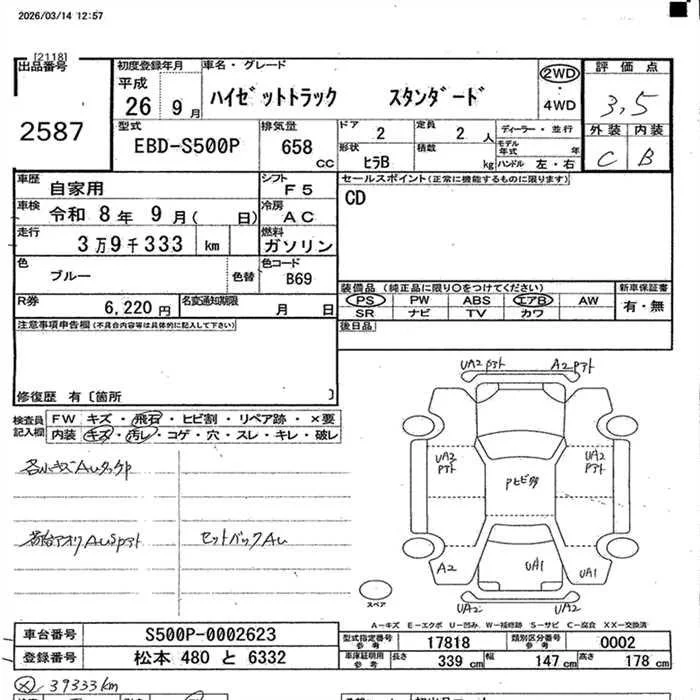 2026/03/14 12:57
[2118]
出品番号
2587
初度登録年月
平成
26 9 月
車名・グレード
ハイゼットトラック スタンダード
2WD
4WD
評価点
3,5
外装 内装
C B
型式
EBD-S500P
排気量
658 cc
ドア 2
形状 ヒラB
定員 2 人
積載 kg
ディーラー・並行
モデル年式 年
ハンドル 左・右
車歴 自家用
シフト F5
セールスポイント(正常に機能するものに限ります)
CD
車検 令和 8年 9月( 日)
冷房 AC
走行 3万9千333 km
燃料 ガソリン
色 ブルー
色替
色コード B69
装備品(純正品に限り○をつけてください)
新車保証書
PS PW ABS エアB AW
SR ナビ TV カワ
有・無
R券 6,220円
名変通知期限 月 日
後日品
注意事項申告欄(不具合内容等は具体的に記入して下さい)
修復歴 有〔箇所 〕
検査員記入欄
FW キズ・飛石・ヒビ割・リペア跡・×要
内装 キズ・汚レ・コゲ・穴・スレ・キレ・破レ
UA2 P3ト A2P3ト
UA2 P3ト
UA2 P3ト
セットバックAU
A2
UA1
UA1
UA2
UA2
スペア
A-キズ E-エクボ U-凹み W-補修跡 S-サビ C-腐食 XX-交換済
車台番号 S500P-0002623
登録番号 松本 480 と 6332
型式指定番号参考 17818
類別区分番号参考 0002
車庫証明用参考 長さ 339 cm 幅 147 cm 高さ 178 cm
39333km